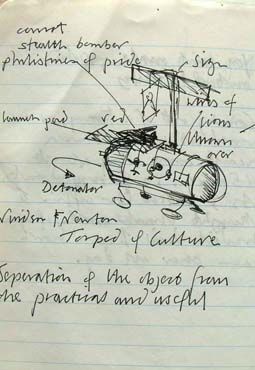 comet
stealth bomber
philistines of pride
Sign
launch pad
red
wires of
lions
thrown
over
Detonator
Windsor & Newton
Torped of Culture
Seperation of the object from
the practical and useful